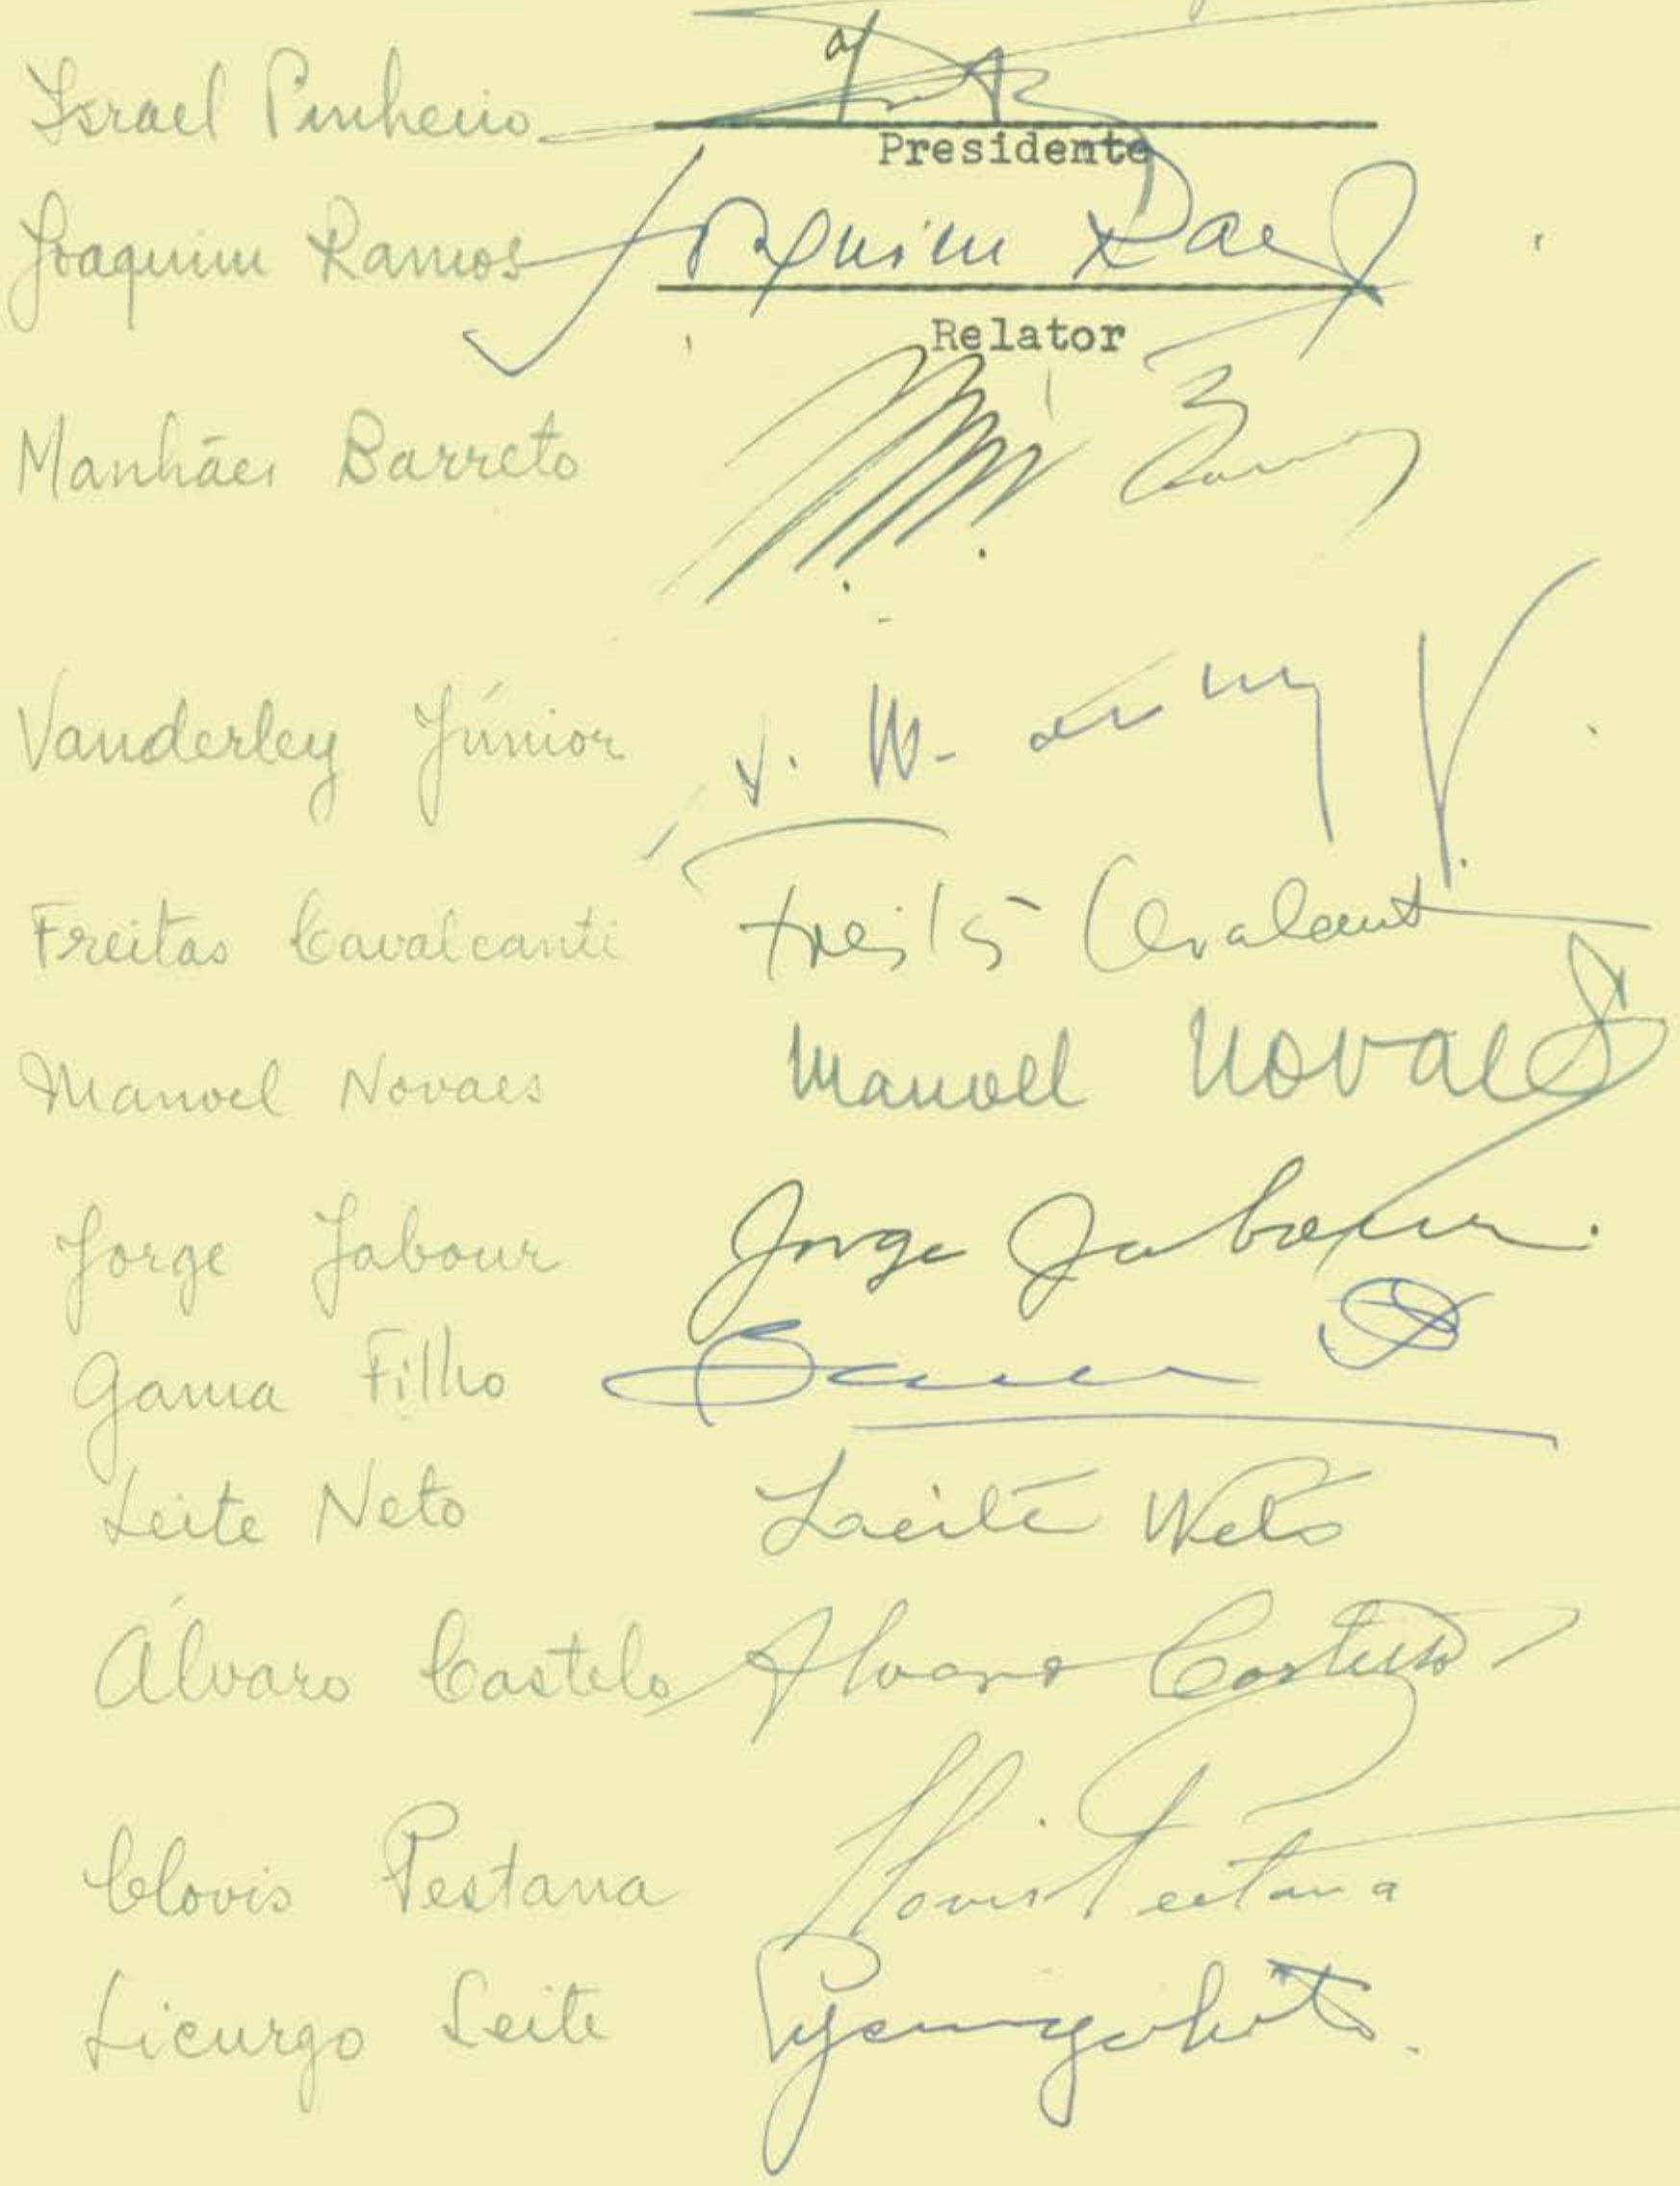 Israel Pinheiro
Presidente
Joaquim Ramos Joaquim Ramos
Relator
Manhães Barreto
Vanderley Júnior
Freitas Cavalcanti Freitas Cavalcanti
Manoel Novaes Manoel Novaes
Jorge Jabour Jorge Jabour.
Gama Filho
Leite Neto Leite Neto
Álvaro Castelo Alvaro Castelo
Clovis Pestana Clovis Pestana
Licurgo Leite